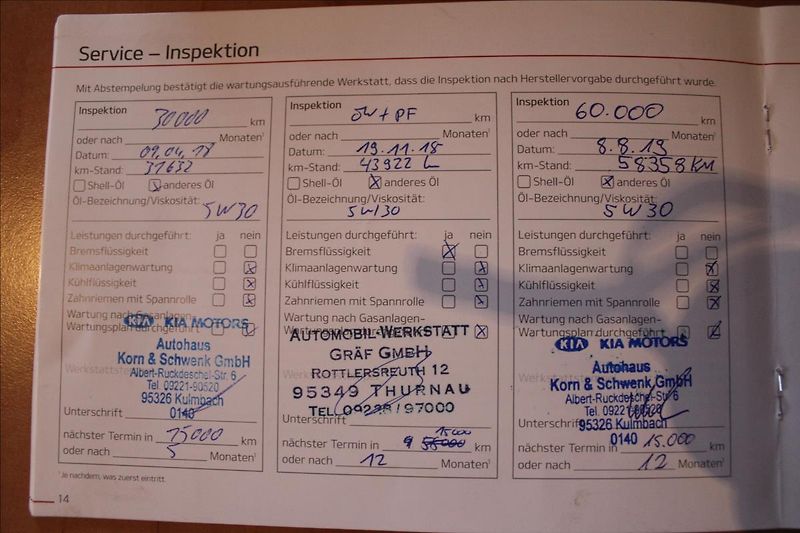 Service – Inspektion
Mit Abstempelung bestätigt die wartungsausführende Werkstatt, dass die Inspektion nach Herstellervorgabe durchgeführt wurde.
Inspektion 30000 km
oder nach Monaten¹
Datum: 09.04.18
km-Stand: 31632
Shell-Öl anderes Öl
Öl-Bezeichnung/Viskosität:
5W30
Leistungen durchgeführt: ja nein
Bremsflüssigkeit
Klimaanlagenwartung
Kühlflüssigkeit
Zahnriemen mit Spannrolle
Wartung nach Gasanlagen-
Wartungsplan durchgeführt
KIA KIA MOTORS
Autohaus
Korn & Schwenk GmbH
Albert-Ruckdeschel-Str. 6
Tel 09221-90520
95326 Kulmbach
0140
Unterschrift
nächster Termin in 15000 km
oder nach 5 Monaten¹
¹Je nachdem, was zuerst eintritt.
14
Inspektion ÖW + PF km
oder nach Monaten¹
Datum: 19.11.18
km-Stand: 43922
Shell-Öl anderes Öl
Öl-Bezeichnung/Viskosität:
5W30
Leistungen durchgeführt: ja nein
Bremsflüssigkeit
Klimaanlagenwartung
Kühlflüssigkeit
Zahnriemen mit Spannrolle
Wartung nach Gasanlagen-
AUTOMOBIL-WERKSTATT
GRÄF GMBH
ROTTLERSREUTH 12
95349 THURNAU
TEL 09228/97000
Unterschrift
15000
nächster Termin in km
oder nach 12 Monaten¹
Inspektion 60.000 km
oder nach Monaten¹
Datum: 8.8.19
km-Stand: 58358 KM
Shell-Öl anderes Öl
Öl-Bezeichnung/Viskosität:
5W30
Leistungen durchgeführt: ja nein
Bremsflüssigkeit
Klimaanlagenwartung
Kühlflüssigkeit
Zahnriemen mit Spannrolle
Wartung nach Gasanlagen-
Wartungsplan durchgeführt
KIA KIA MOTORS
Autohaus
Korn & Schwenk GmbH
Albert-Ruckdeschel-Str. 6
Tel 09221-90520
Unterschrift 95326 Kulmbach
0140
nächster Termin in 15.000 km
oder nach 12 Monaten¹